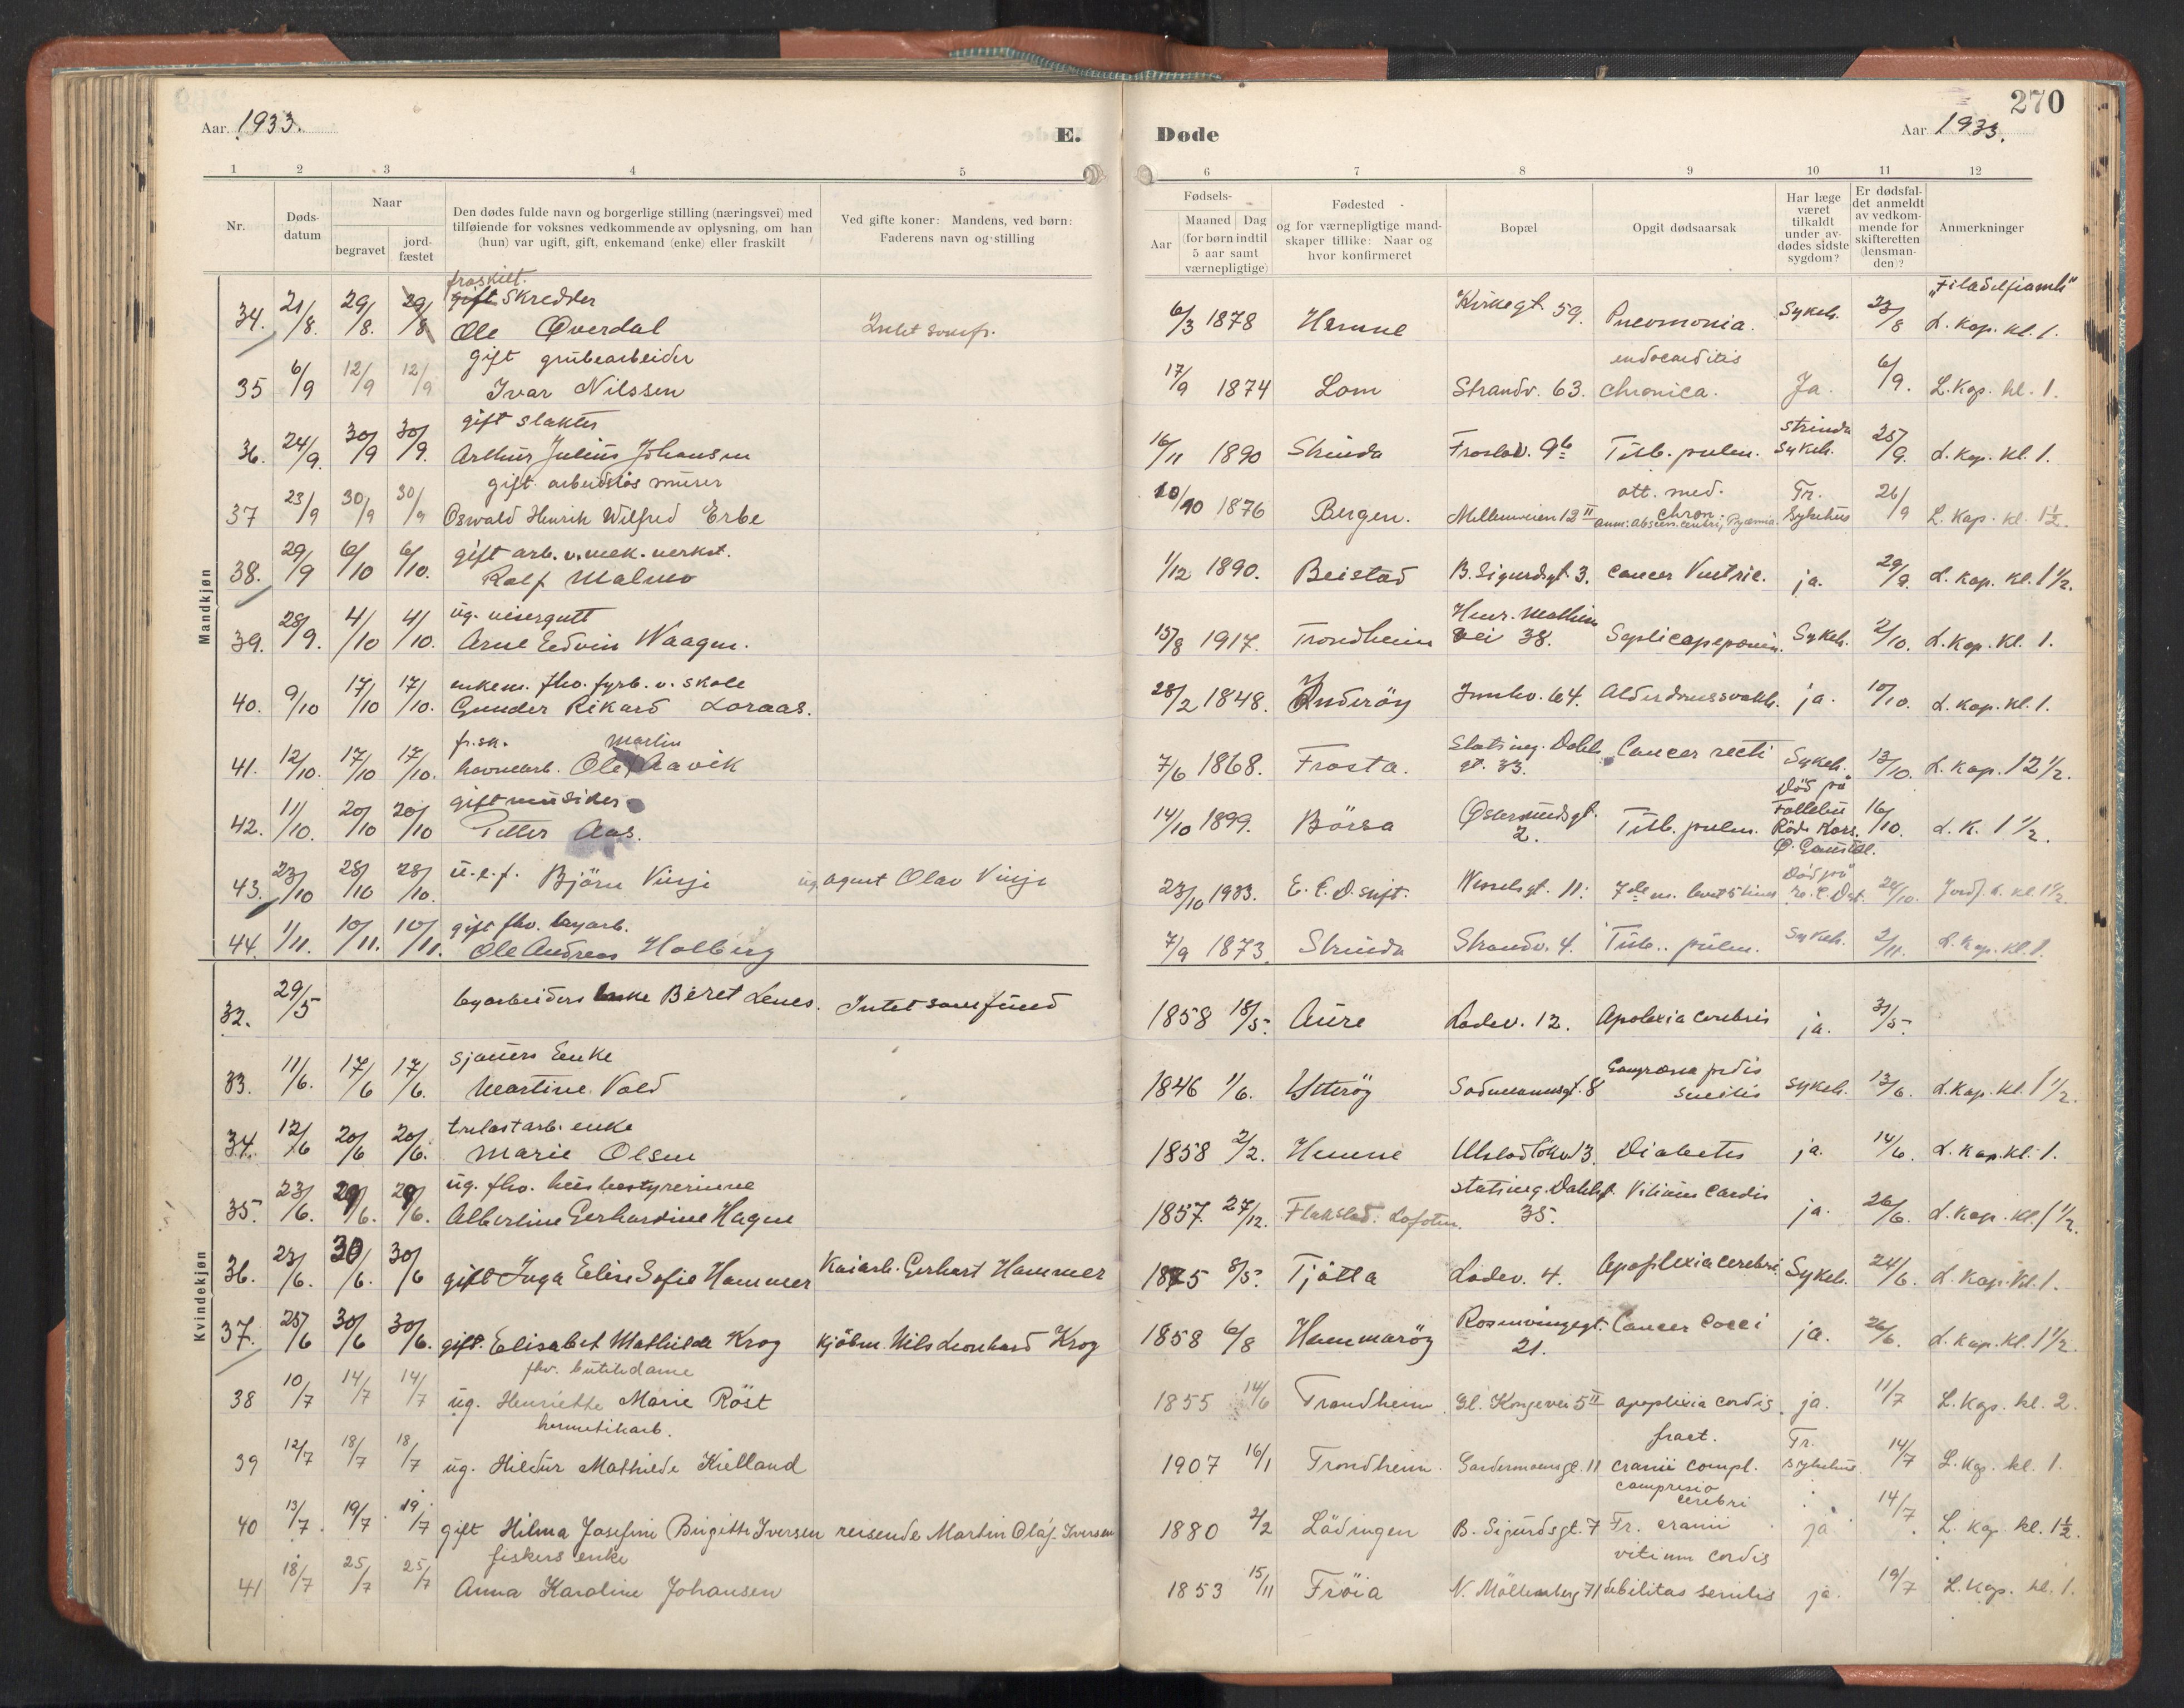 270
Aar 1933. E. Døde Aar 1933.
1 2 3 4 5 6 7 8 9 10 11 12
Nr.
Døds-
datum
Naar
begravet
jord-
fæstet
Den dødes fulde navn og borgerlige stilling (næringsvei) med
tilføiende for voksnes vedkommende av oplysning, om han
(hun) var ugift, gift, enkemand (enke) eller fraskilt
Ved gifte koner: Mandens, ved børn:
Faderens navn og stilling
Fødsels-
Aar
Maaned Dag
(for børn indtil
5 aar samt
værnepligtige)
Fødested
og for værnepligtige mand-
skaper tillike: Naar og
hvor konfirmeret
Bopæl
Opgit dødsaarsak
Har læge
været
tilkaldt
under av-
dødes sidste
sygdom?
Er dødsfal-
det anmeldt
av vedkom-
mende for
skifteretten
(lensman-
den)?
Anmerkninger
Mandkjøn
fraskilt.
gift skredder "Filadelfiamh"
34. 21/8. 29/8. 29/8 Ole Øverdal Intet somf. 6/3 1878 Hemne Kirkegt. 59. Pneomonia. Sykeh. 23/8 L. Kap. kl. 1.
gift grubearbeider endocarditis
35 6/9 12/9 12/9 Ivar Nilssen 17/9 1874 Lom Strandv. 63. chronica. Ja. 6/9. L. Kap. kl. 1.
gift slakter Strinda
36. 24/9. 30/9 30/9. Arthur Julius Johansen 16/11 1890 Strinda Frostav. 9b Tub. pulm. Sykeh. 25/9. L. Kap. kl. 1.
gift. arbeidsløs murer ott. med. Tr.
37 23/9 30/9 30/9 Oswald Henrik Wilfred Erbe 10/10 1876 Bergen. Mellemveien 12 II chron. Sykehus 26/9 L. Kap. kl. 1½.
gift arb. v. mek. verkst.
38. 29/9 6/10 6/10. Ralf Malmo 1/12 1890. Beistad B. Sigurdsgt. 3. Cancer Ventric. ja. 29/9. L. Kap. kl. 1½.
ug. visergutt
39. 28/9. 4/10 4/10. Arne Edvin Waagen. 15/8 1917. Trondheim vei 38. Sykeh. 2/10. L. Kap. kl. 1.
enkem. fho. fyrb. v. skole
40. 9/10 17/10 17/10. Gunder Rikard Loraas. 28/2 1848. Inderöy Innhv. 64. Alderdomssvakh. ja. 10/10. L. Kap. kl. 1.
fr.sk. Martin
41. 12/10. 17/10 17/10. havnearb. Ole Aavik 7/6 1868. Frosta. Statsing. Dahls gt. 33. Cancer recti Sykeh. 13/10. L. Kap. 12½.
gift musiker Död på
42. 11/10. 20/10 20/10 Petter Aas. 14/10 1899. Börsa 2. Tub. pulm. Röde Kors. 16/10. L. K. 1½.
43. 23/10 28/10 28/10. u.e.f. Björn Vinje ug. agent Olav Vinje 23/10 1933. E. C. D. stift. Wesselsgt. 11. Död på 24/10. Jordf. L. kl. 1½
gift fhv. byarb.
44. 1/11. 10/11. 10/11. Ole Andreas Holberg 7/9 1873. Strinda Strandv. 4. Tub. pulm. Sykeh. 2/11. L. Kap. kl. 1.
Kvindekjøn
32. 29/5 byarbeiders enke Beret Lenes. Intet samfund 1858 18/5. Aure Ladev. 12. Apolexia cerebris ja. 31/5.
sjauers Enke
33. 11/6. 17/6 17/6. Martine Vold 1846 1/6. Ytteröy Sodemannsgt. 8 Gangræna pedis senilis sykeh. 13/6. L. Kap. kl. 1½.
trelastarb. enke
34. 12/6 20/6 20/6. Marie Olsen 1858 2/2. Hemne Ulstadlökv 13. Diabetes ja. 14/6. L. Kap. kl. 1.
ug. fhv. husbestyrerinne
35. 23/6. 29/6. 29/6. Albertine Gerhardine Hagen 1857 27/12. Flakstad. Lofoten. Statsing. Dahlsgt. 35. Vitium Cordis ja. 26/6. L. Kap. kl. 1½.
36. 23/6. 30/6. 30/6 gift Inga Elise Sofie Hammer Kaiarb. Gerhart Hammer 1875 8/5. Tjötta Ladev. 4. Apoplexia cerebri. Sykeh. 24/6. L. Kap. kl. 1.
37. 25/6 30/6 30/6. gift. Elisabet Mathilde Krog kjöbm. Nils Leonhard Krog 1858 6/8 Hammaröy Rosenvingegt. 21. Cancer ja. 26/6. L. Kap. kl. 1½.
fhv. butikdame
38 10/7 14/7 14/7 ug. Henriette Marie Röst 1855 14/6 Trondheim Gl. Kongevei 5 II apoplexia cordis ja. 11/7 L. Kap. kl. 2.
hermetikarb. fract. Tr.
39 12/7 18/7 18/7 ug. Hildur Mathilde Kielland 1907 16/1 Trondheim. Gardermoensgt. 11 cranii compl. sykehus 14/7 L. Kap. kl. 1.
compresio cerebri
40 13/7. 19/7. 19/7 gift Hilma Josefine Birgitte Iversen reisende Martin Olaf Iversen 1880 2/2 Lödingen B. Sigurdsgt. 7 Fr. cranii ja 14/7. L. Kap. kl. 1½.
fiskers enke vitium cordis
41 18/7 25/7 25/7 Anna Karoline Johansen 1853 15/11 Fröia N. Möllenberg 71 debilitas senilis ja. 19/7 L. Kap. kl. 1.